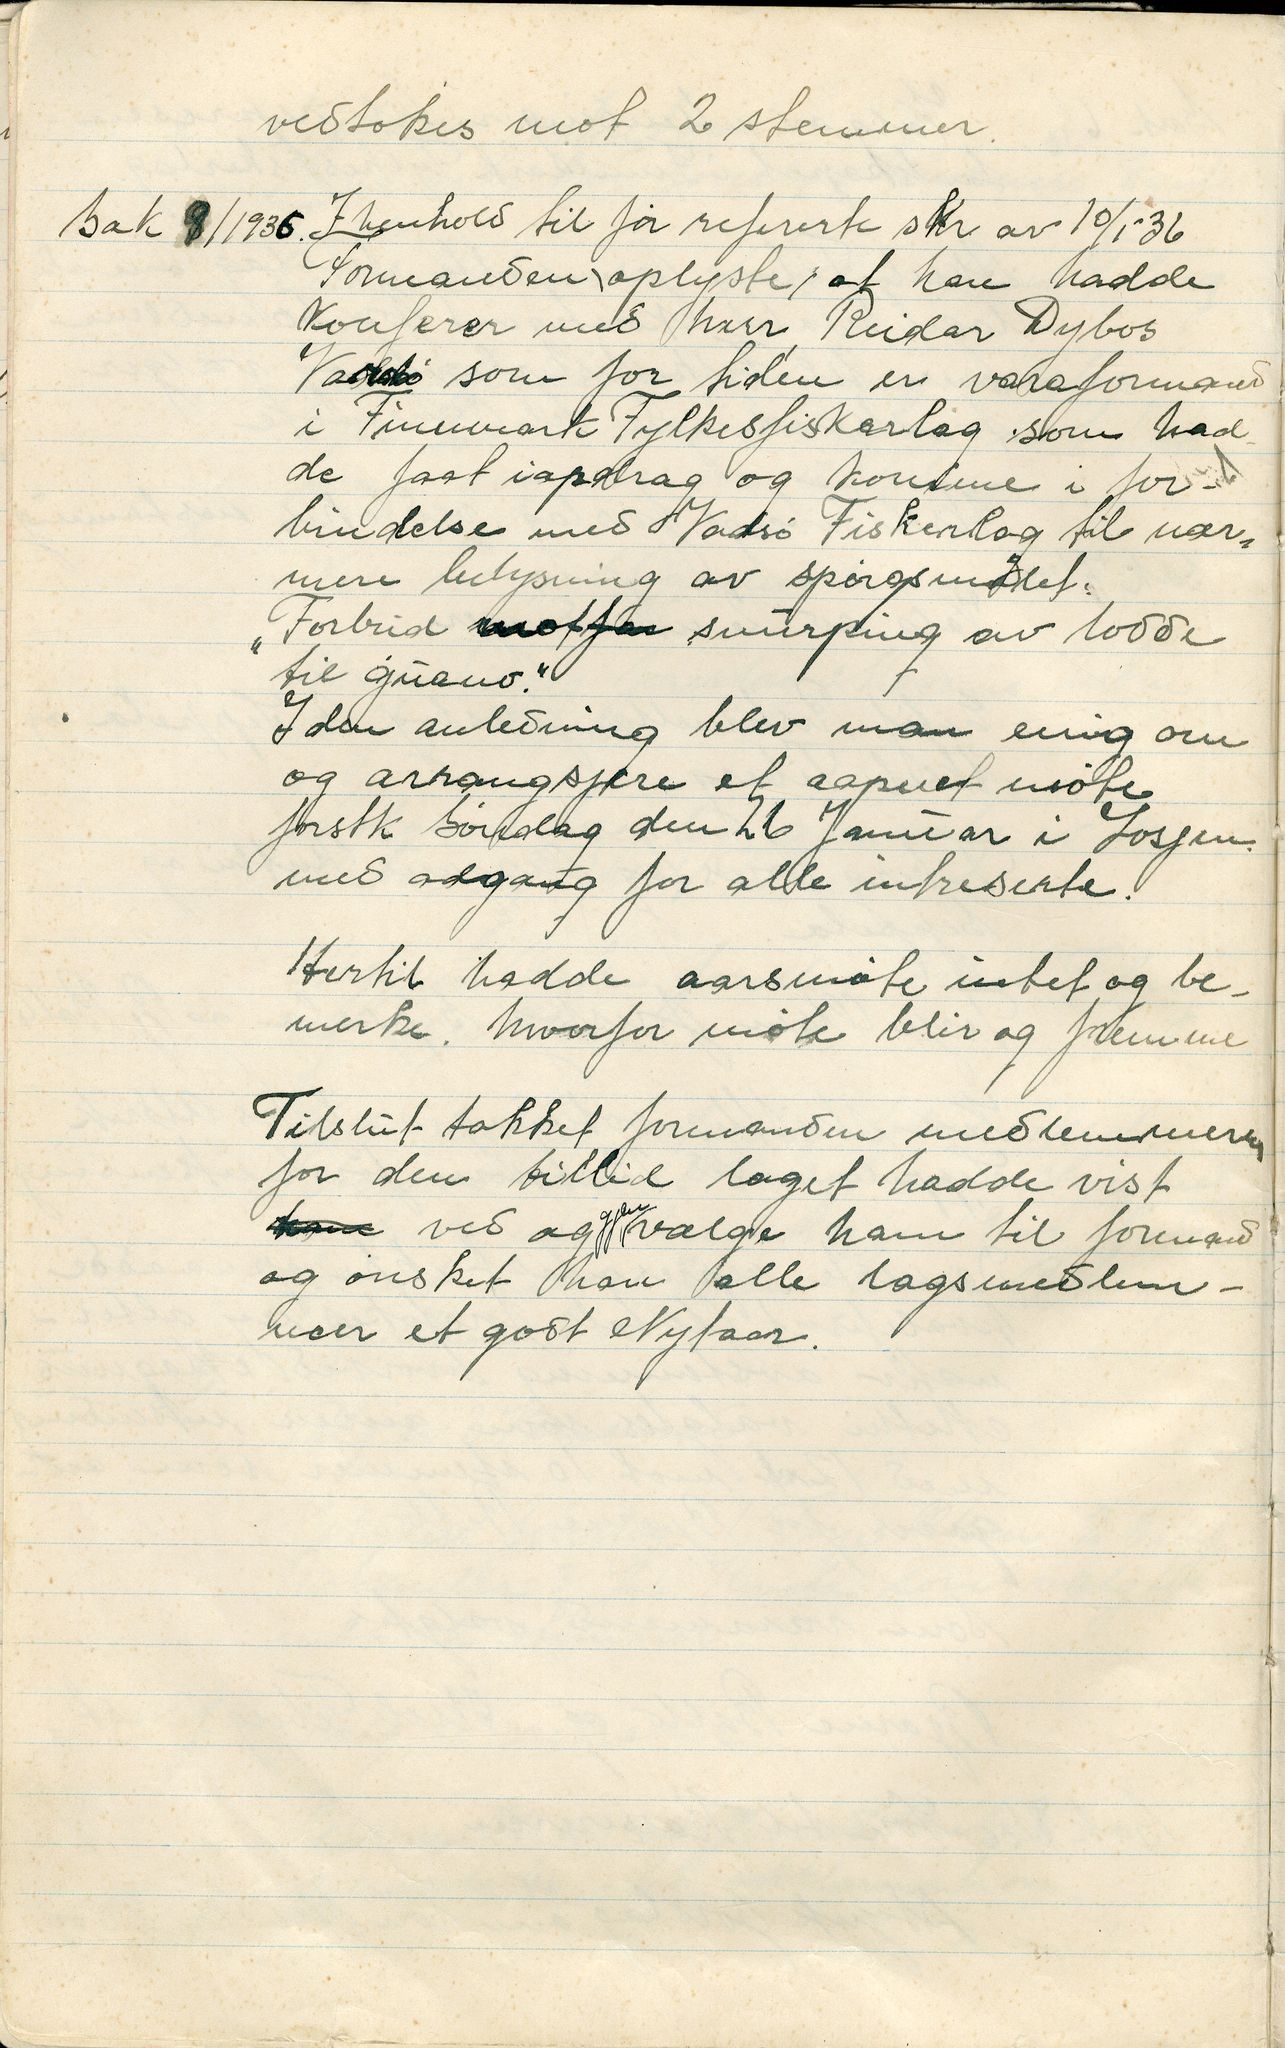 vedtokes mot 2 stemmer.
Sak 8/1936. I henhold til før refererte skr av 10/1-36
Formanden oplyste, at han hadde
konferer med herr, Reidar Dybos
Vadsø som for tiden er varaformand
i Finnmark Fylkesfiskarlag som had-
de faat i opdrag og komme i for-
bindelse med Vadsø Fiskerlag til nær-
mere belysning av spørgsmålet:
"Forbud snurping av lodde
til guano."
I den anledning blev man enig om
og arrangsjere et aapnet møte
forstk søndag den 26 Januar i Losjen.
med adgang for alle intreserte.
Hertil hadde aarsmøte intet og be-
merke. hvorfor møte blir og fremme
Tilslut takket formanden medlemmerne
for den tillid laget hadde vist
ved og gjen vælge ham til formand
og ønsket han alle lagsmedlem-
mer et godt Nytaar.